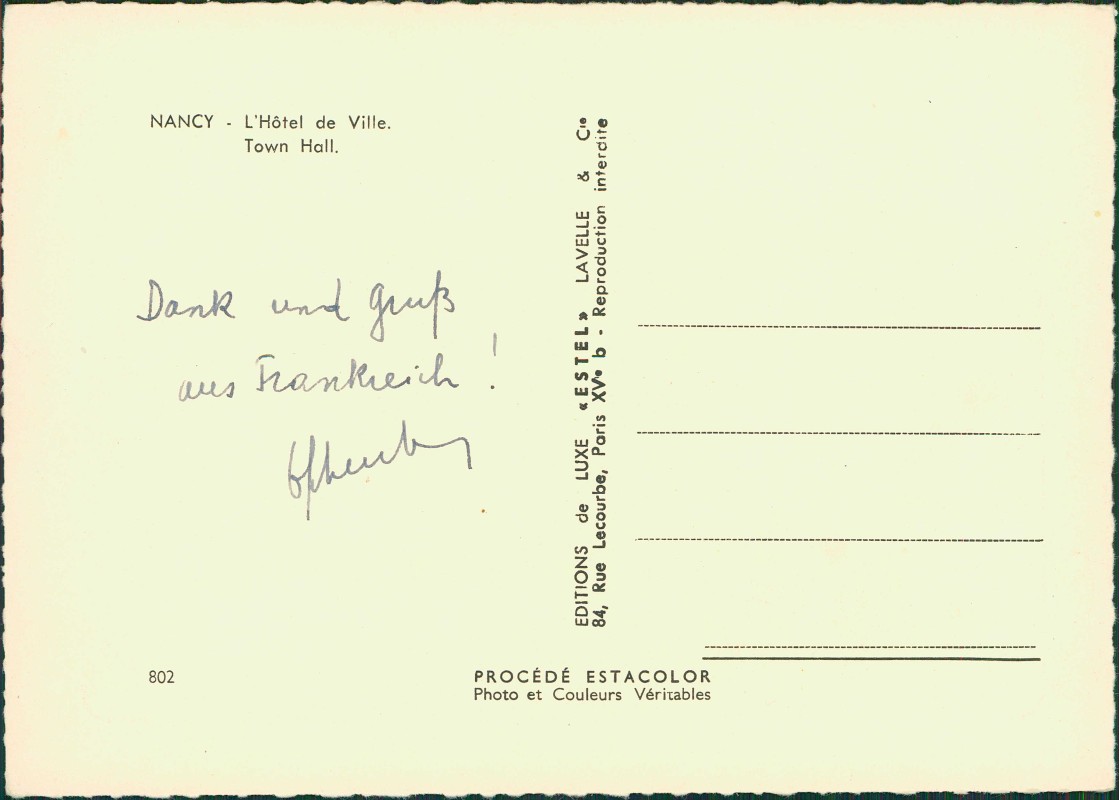 NANCY - L'Hôtel de Ville.
Town Hall.
Dank und Gruß
aus Frankreich !
EDITIONS de LUXE «ESTEL» LAVELLE & Cie
84, Rue Lecourbe, Paris XVe b - Reproduction interdite
802
PROCÉDÉ ESTACOLOR
Photo et Couleurs Véritables